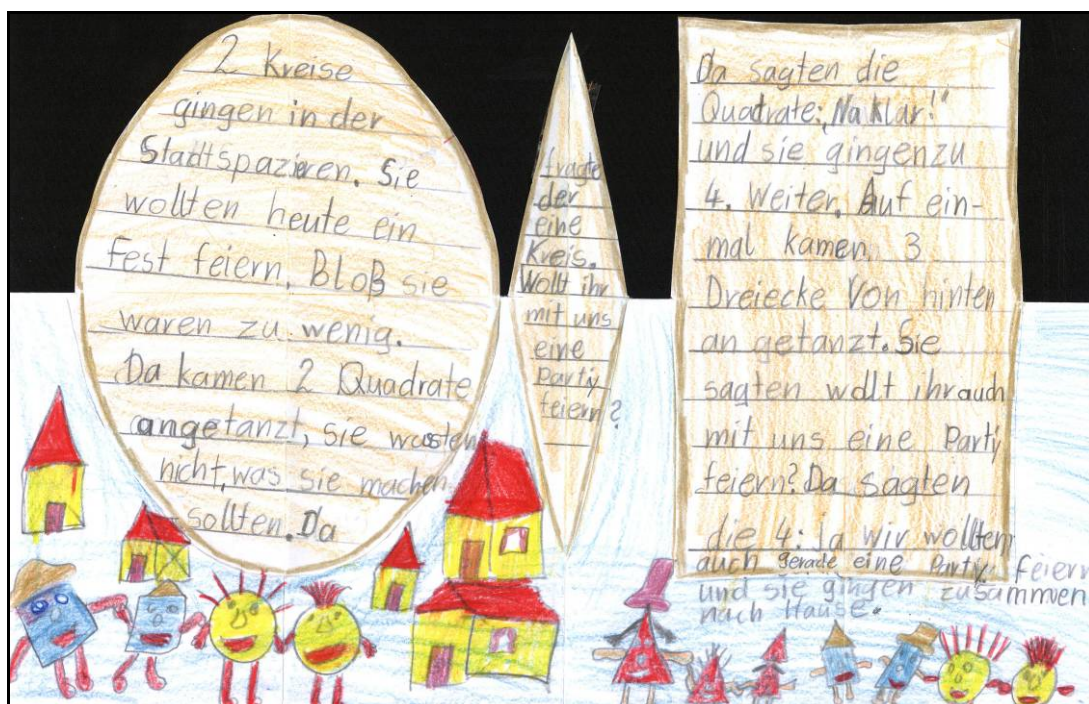 2 Kreise
gingen in der
Stadtspazieren. Sie
wollten heute ein
Fest feiern. Bloß sie
waren zu wenig.
Da kamen 2 Quadrate
angetanzt, sie wusten
nicht, was sie machen
sollten. Da
fragte
der
eine
Kreis.
Wollt ihr
mit uns
eine
Party
feiern?
Da sagten die
Quadrate: „Na klar!"
und sie gingenzu
4. Weiter. Auf ein-
mal kamen 3
Dreiecke Von hinten
an getanzt. Sie
sagten wollt ihrauch
mit uns eine Party
feiern? Da sagten
die 4: Ja wir wollten
auch gerade eine Party feiern
und sie gingen zusammen
nach Hause.